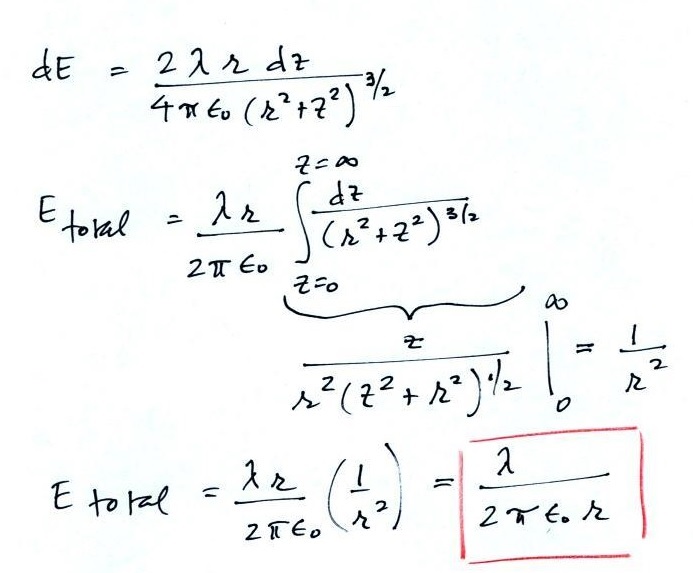 dE = 2 λ r dz / 4 π ϵ₀ (r² + z²)^3/2
z = ∞
E total = λ r / 2 π ϵ₀ ∫ dz / (r² + z²)^3/2
z = 0
z / r² (z² + r²)^1/2 |₀^∞ = 1 / r²
E total = λ r / 2 π ϵ₀ (1 / r²) = λ / 2 π ϵ₀ r